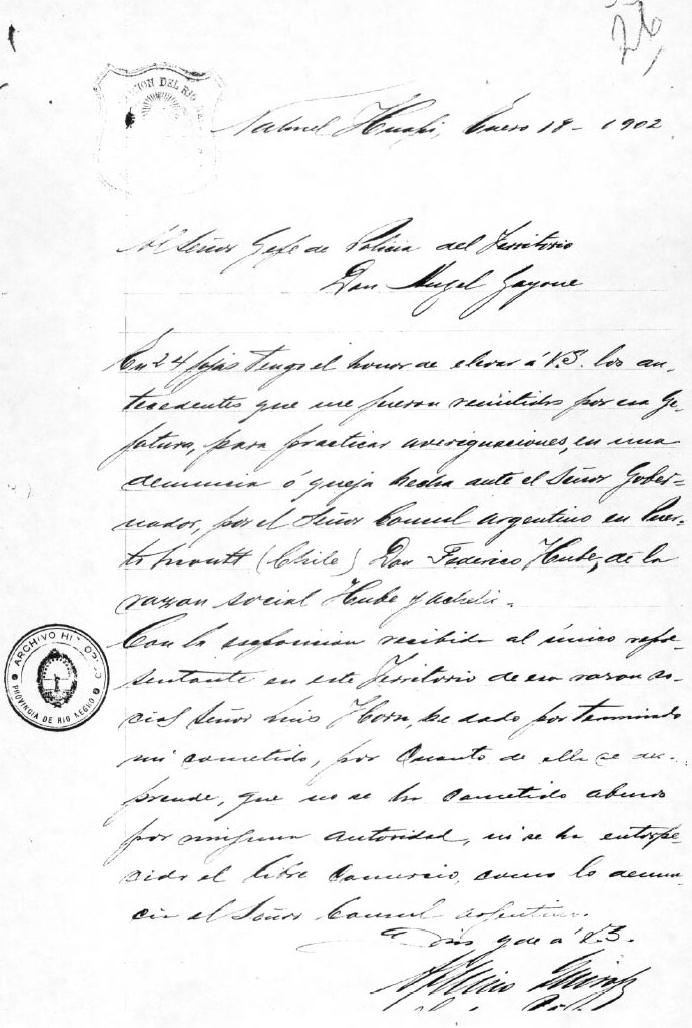 26
CION DEL RIO
Nahuel Huapi, Enero 18 - 1902
Al Señor Gefe de Policia del Territorio
Don Angel Gayone
En 24 fojas tengo el honor de elevar á V.S. los an-
tecedentes que me fueron remitidos por esa Ge-
fatura, para practicar averiguaciones, en una
denuncia ó queja hecha ante el Señor Gober-
nador, por el Señor Consul Argentino en Puer-
to Montt (Chile) Don Federico Hube, de la
razon social Hube y Achelis.
Con la exposicion recibida al único repre-
sentante en este Territorio de esa razon so-
cial Señor Luis Horn, he dado por terminado
mi cometido, por cuanto de ella se des-
prende, que no se ha cometido abuso
por ninguna autoridad, ni se ha entorpe-
cido el libre Comercio, como lo denun-
cia el Señor Consul Argentino.
Dios gde á V.S.
ARCHIVO HISTORICO
PROVINCIA DE RIO NEGRO